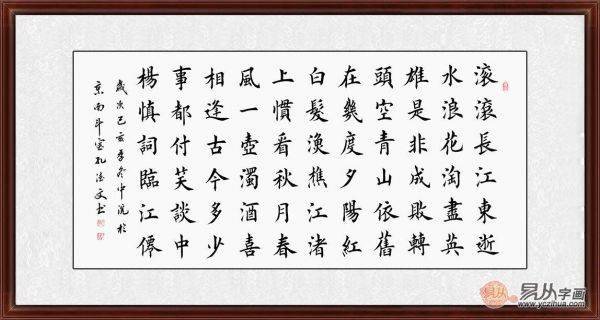 滚滚長江東逝
水浪花淘盡英
雄是非成敗轉
頭空青山依舊
在幾度夕陽紅
白髮漁樵江渚
上慣看秋月春
風一壺濁酒喜
相逢古今多少
事都付笑談中
楊慎詞臨江僊
歲次己亥冬中浣於
京南斗室孔文書
易从字画
www.yczihua.com